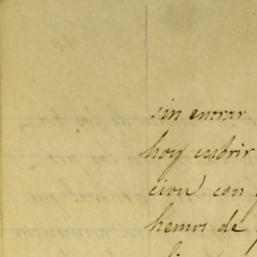 sin entrar
hoy cubrir
cion) con
hemos de